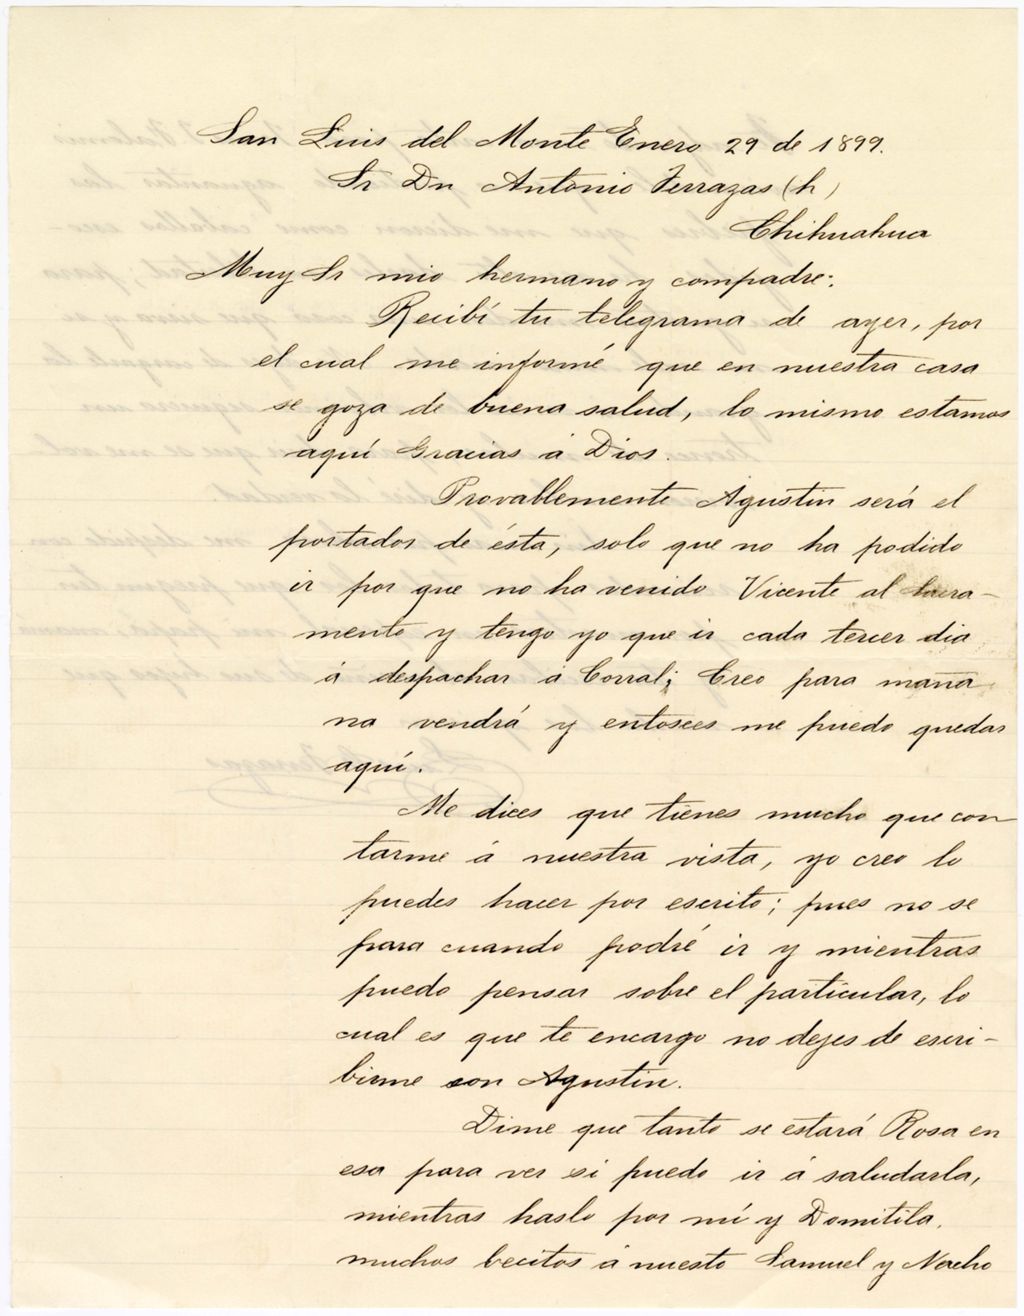 San Luis del Monte Enero 29 de 1899.
Sr Dn Antonio Terrazas (h)
Chihuahua
Muy Sr mio hermano y compadre:
Recibí tu telegrama de ayer, por
el cual me informé que en nuestra casa
se goza de buena salud, lo mismo estamos
aquí Gracias á Dios.
Provablemente Agustin será el
portador de ésta, solo que no ha podido
ir por que no ha venido Vicente al herra-
mento y tengo yo que ir cada tercer dia
á despachar á Corral; Creo para maña
na vendrá y entosces me puedo quedar
aquí.
Me dices que tienes mucho que con
tarme á nuestra vista, yo creo lo
puedes hacer por escrito; pues no se
para cuando podré ir y mientras
puedo pensar sobre el particular, lo
cual es que te encargo no dejes de escri-
birme con Agustin.
Dime que tanto se estará Rosa en
esa para ver si puedo ir á saludarla,
mientras haslo por mí y Domitila.
muchos becitos á nuesto Samuel y Nacho